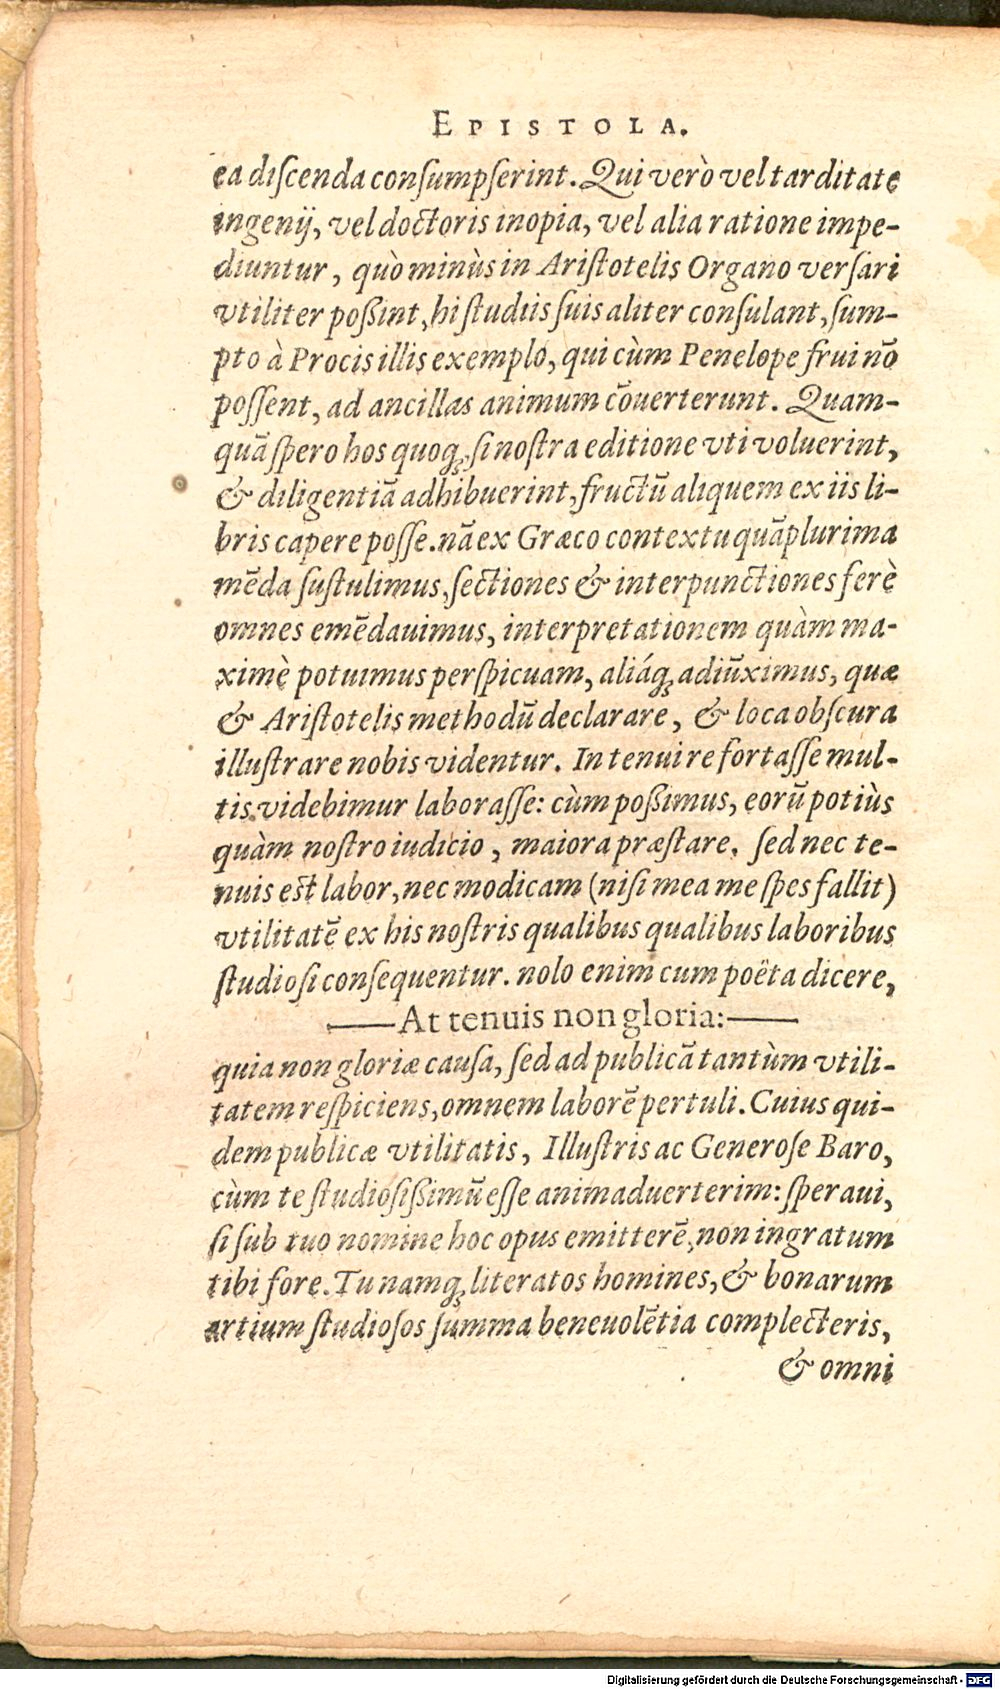 EPISTOLA.
ea discenda consumpserint. Qui verò vel tarditate
ingenij, vel doctoris inopia, vel alia ratione impe-
diuntur, quò minùs in Aristotelis Organo versari
vtiliter poßint, hi studiis suis aliter consulant, sum-
pto à Procis illis exemplo, qui cùm Penelope frui nõ
possent, ad ancillas animum cõuerterunt. Quam-
quã spero hos quoqꝫ, si nostra editione vti voluerint,
& diligentiã adhibuerint, fructũ aliquem ex iis li-
bris capere posse. nã ex Græco contextu quãplurima
mẽda sustulimus, sectiones & interpunctiones ferè
omnes emẽdauimus, interpretationem quàm ma-
ximè potuimus perspicuam, aliáqꝫ adiũximus, quæ
& Aristotelis methodũ declarare, & loca obscura
illustrare nobis videntur. In tenui re fortasse mul-
tis videbimur laborasse: cùm poßimus, eorũ potiùs
quàm nostro iudicio, maiora præstare. sed nec te-
nuis est labor, nec modicam (nisi mea me spes fallit)
vtilitatẽ ex his nostris qualibus qualibus laboribus
studiosi consequentur. nolo enim cum poëta dicere,
——At tenuis non gloria:——
quia non gloriæ causa, sed ad publicã tantùm vtili-
tatem respiciens, omnem laborẽ pertuli. Cuius qui-
dem publicæ vtilitatis, Illustris ac Generose Baro,
cùm te studiosißimũ esse animaduerterim: speraui,
si sub tuo nomine hoc opus emitterẽ, non ingratum
tibi fore. Tu namqꝫ literatos homines, & bonarum
artium studiosos summa beneuolẽtia complecteris,
& omni
Digitalisierung gefördert durch die Deutsche Forschungsgemeinschaft - DFG